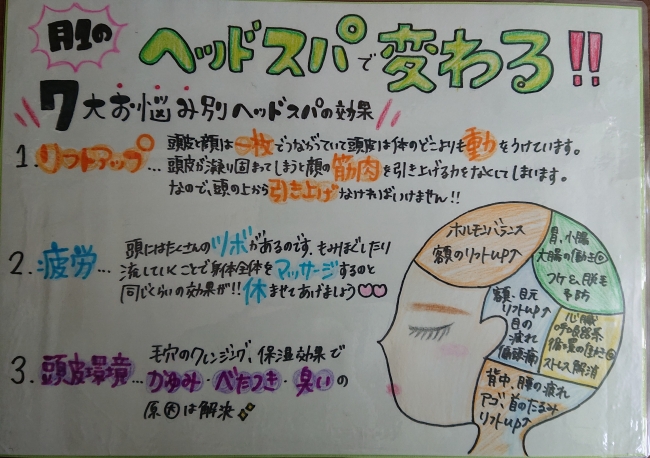 月1の
ヘッドスパで変わる!!
7大お悩み別ヘッドスパの効果
1. リフトアップ… 頭皮と顔は一枚でつながっていて頭皮は体のどこよりも動をうけています。
頭皮が凝り固まってしまうと顔の筋肉を引き上げる力をなくしてしまいます。
なので、頭の上から引き上げなければいけません!!
2. 疲労… 頭にはたくさんのツボがあるのです。もみほぐしたり
流していくことで身体全体をマッサージするのと
同じくらいの効果が!! 休ませてあげましょう♡♡
3. 頭皮環境… 毛穴のクレンジング、保湿効果で
かゆみ・べたつき・臭いの
原因は解決
ホルモンバランス
額のリフトUP↑
胃、小腸
大腸の働き◎
フケ&脱毛
予防
額・目元
リフトUP↑
目の
疲れ
偏頭痛
心臓
呼吸器系
循環の
ストレス解消
背中、腰の疲れ
アゴ、首のたるみ
リフトUP↑